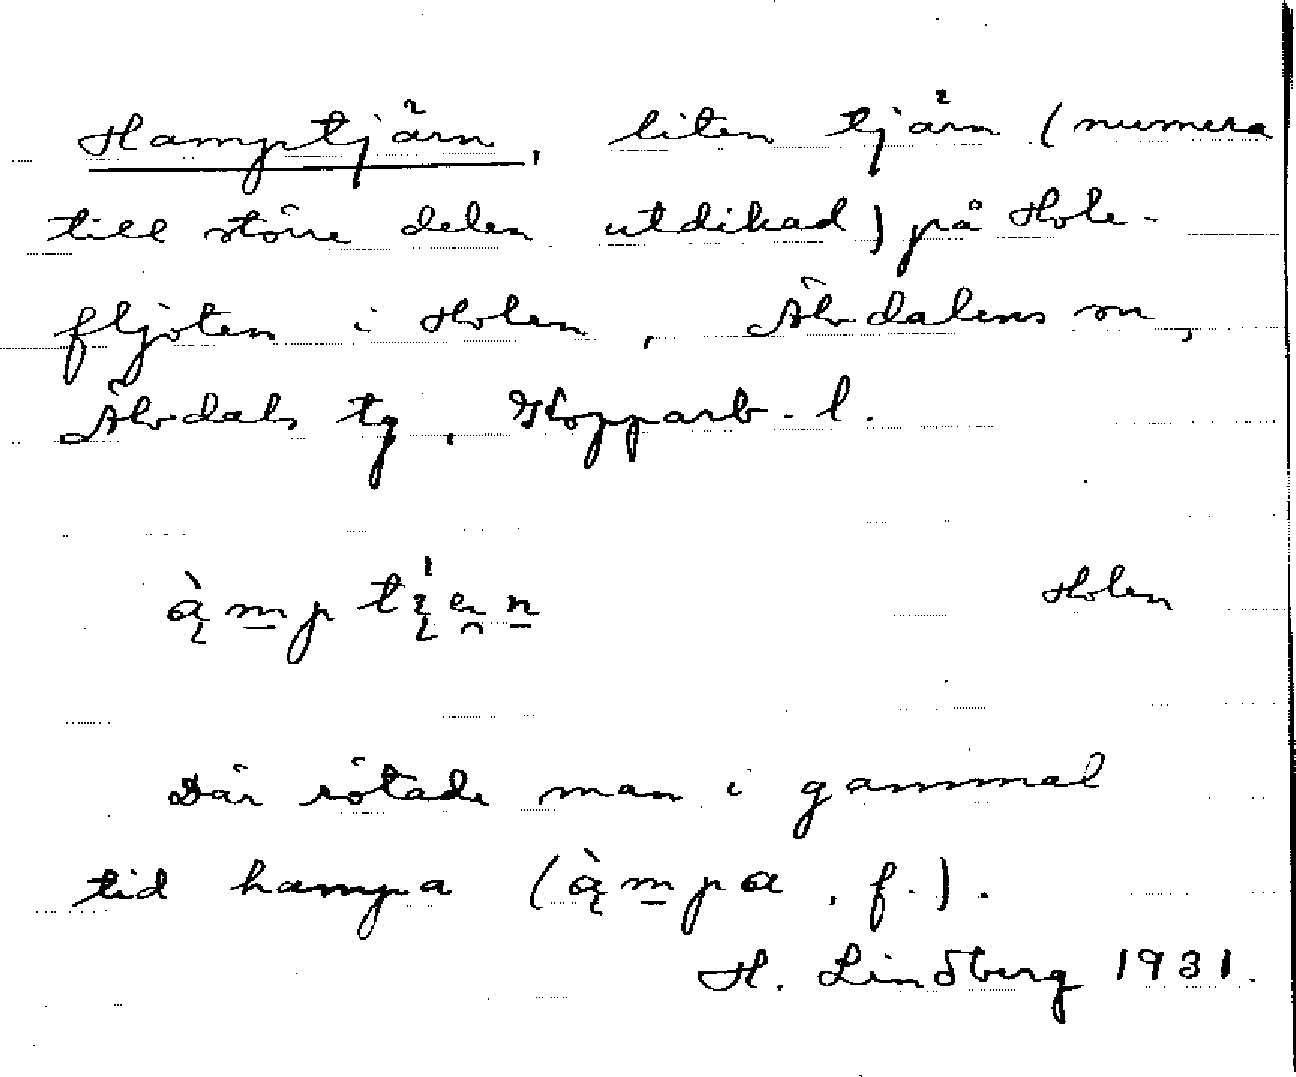 Hamptjärn, liten tjärn (numera
till större delen utdikad) på Hole-
fljoten i Holen, Älvdalens sn,
Älvdals tg, Kopparb. l.
Holen
Där rötade man i gammal
tid hampa (àmpa, f.).
H. Lindberg 1931.